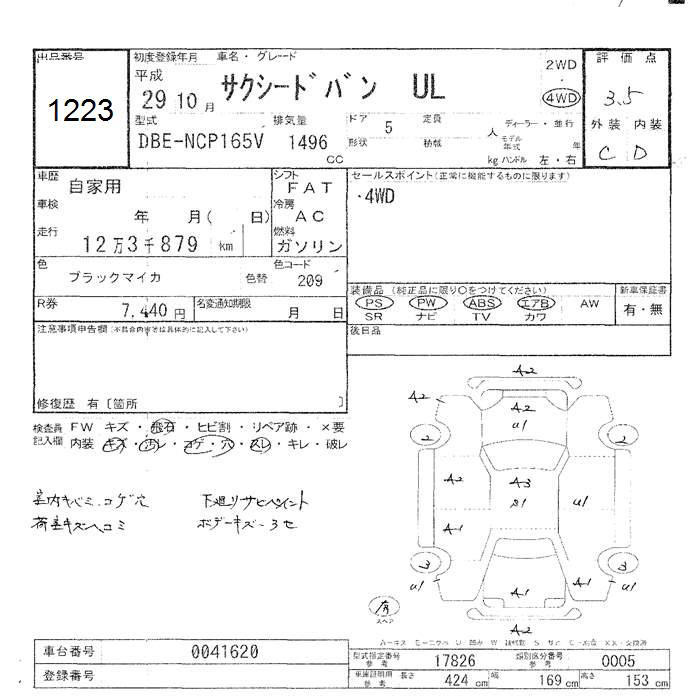 出品番号 初度登録年月 車名・グレード 2WD 評価点
1223 平成 29 10 月 サクシードバン UL ・ 4WD 3.5
型式 排気量 ドア 定員 ディーラー・並行 外装 内装
DBE-NCP165V 1496 5 人 モデル年式 年 C D
CC 形状 積載 kg ハンドル 左・右
車歴 自家用 シフト FAT セールスポイント(正常に機能するものに限ります)
車検 年 月( 日) 冷房 AC ・4WD
走行 12万3千879 km 燃料 ガソリン
色 ブラックマイカ 色替 色コード 209
装備品 (純正品に限り○をつけてください) 新車保証書
R券 7,440円 名変通知期限 月 日 PS PW ABS エアB AW 有・無
SR ナビ TV カワ
注意事項申告欄(不具合内容等は具体的に記入して下さい) 後日品
修復歴 有〔箇所 〕
検査員 FW キズ・飛石・ヒビ割・リペア跡・×要
記入欄 内装 キズ・汚レ・コゲ・穴・スレ・キレ・破レ
室内キバミ.コゲ穴 下廻リサビペイント
荷室キズヘコミ ボデーキズ〜3セ
A2
A2 A2
U1
2 2
A2 A3 U1
S1
A1
3 3
U1 A1 A1 U1
有
スペア
A2
車台番号 0041620 型式指定番号 参考 17826 類別区分番号 参考 0005
登録番号 車庫証明用 参考 長さ 424 cm 幅 169 cm 高さ 153 cm